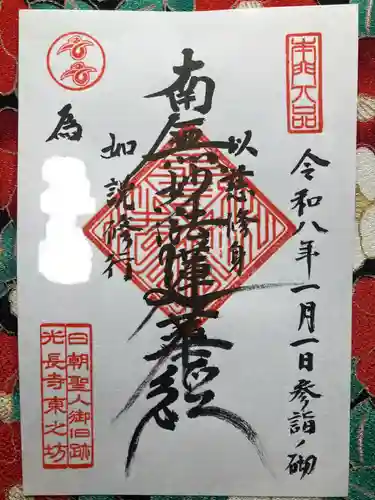 本門八品
令和八年一月一日参詣ノ砌
以慈修身
南無妙法蓮華経
如説修行
為
日朝聖人御旧跡
光長寺東之坊